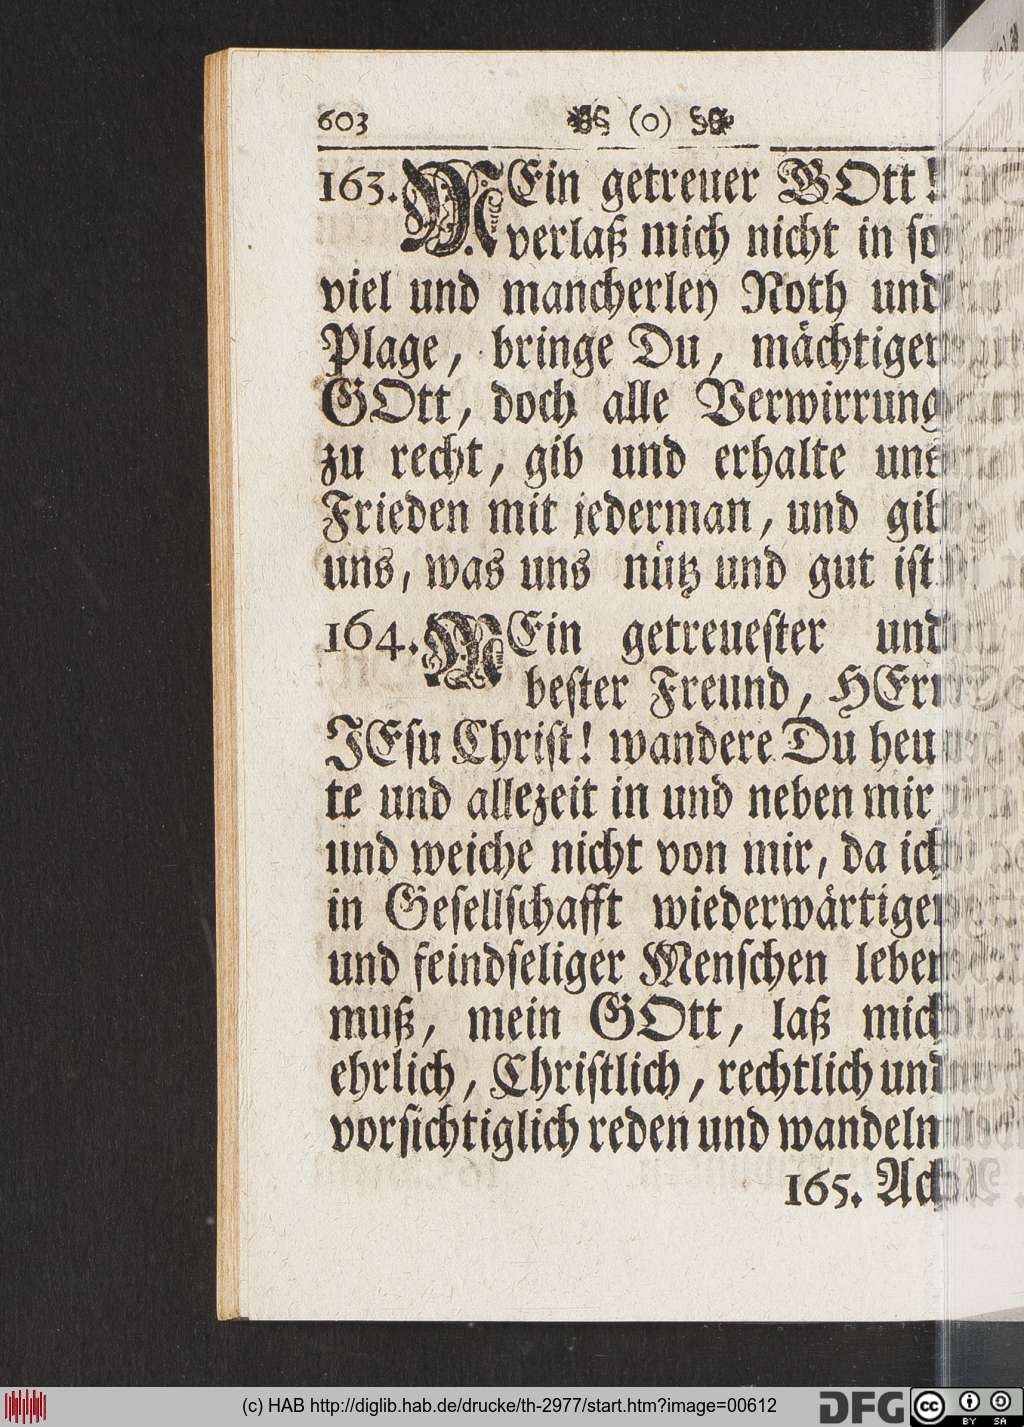 603 (0)
163. MEin getreuer GOtt!
verlaß mich nicht in so
viel und mancherley Noth und
Plage, bringe Du, mächtiger
GOtt, doch alle Verwirrung
zu recht, gib und erhalte uns
Frieden mit jederman, und gib
uns, was uns nütz und gut ist
164. MEin getreuester und
bester Freund, HErr
JEsu Christ! wandere Du heu
te und allezeit in und neben mir
und weiche nicht von mir, da ich
in Gesellschafft wiederwärtiger
und feindseliger Menschen leben
muß, mein GOtt, laß mich
ehrlich, Christlich, rechtlich und
vorsichtiglich reden und wandeln
165. Ach
(c) HAB http://diglib.hab.de/drucke/th-2977/start.htm?image=00612
DFG cc BY SA